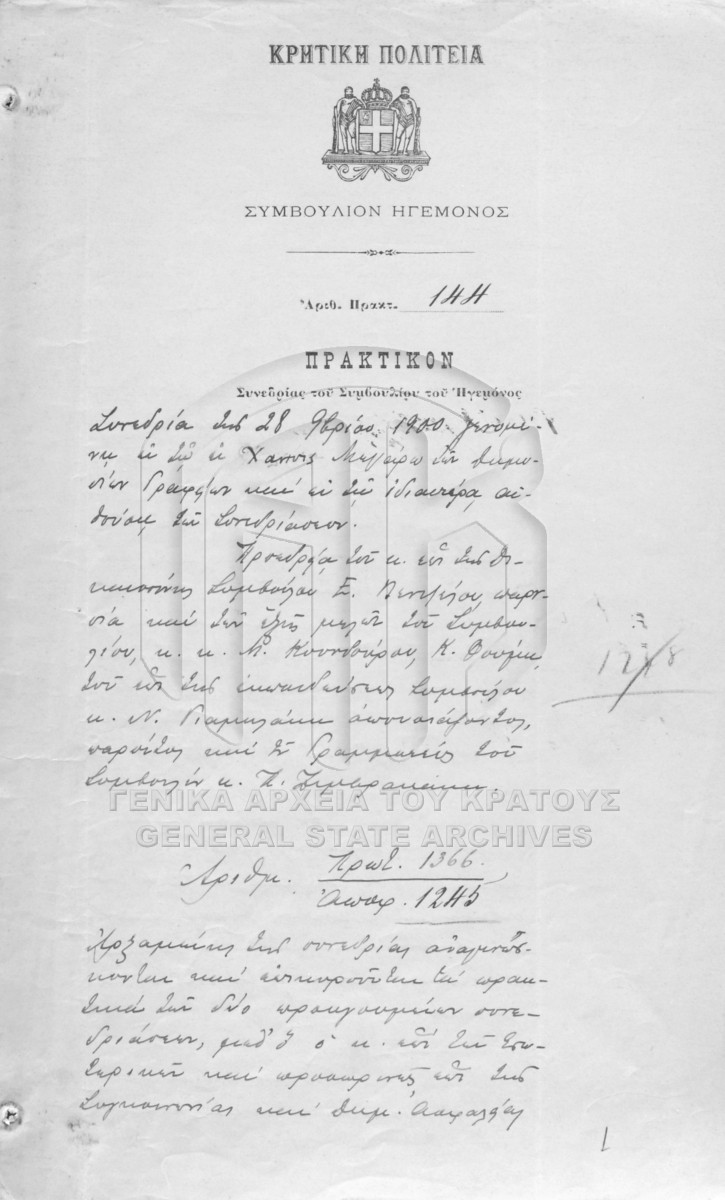 ΚΡΗΤΙΚΗ ΠΟΛΙΤΕΙΑ
ΣΥΜΒΟΥΛΙΟΝ ΗΓΕΜΟΝΟΣ
Ἀριθ. Πρακτ. 144
ΠΡΑΚΤΙΚΟΝ
Συνεδρίας τοῦ Συμβουλίου τοῦ Ἡγεμόνος
Συνεδρία τῆς 28 9βρίου 1900 γενομέ-
νη ἐν τῷ ἐν Χανίοις Μεγάρῳ τῶν δημο-
σίων Γραφείων καί ἐν τῇ ἰδιαιτέρᾳ αἰ-
θούσῃ τῶν Συνεδριάσεων.
Προεδρίᾳ τοῦ κ. ἐπί τῆς Δι-
καιοσύνης Συμβούλου Ε. Βενιζέλου, παρου-
σίᾳ καί τῶν ἑξῆς μελῶν τοῦ Συμβου-
λίου, κ. κ. Μ. Κουνδούρου, Κ. Φούμη,
τοῦ ἐπί τῆς ἐκπαιδεύσεως Συμβούλου
κ. Ν. Γιαμαλάκη ἀπουσιάζοντος,
παρόντος καί τοῦ Γραμματέως τοῦ
Συμβουλίου κ. Π. Ζυμβρακάκη.
1248
ΓΕΝΙΚΑ ΑΡΧΕΙΑ ΤΟΥ ΚΡΑΤΟΥΣ
GENERAL STATE ARCHIVES
Ἀριθμ. Πρωτ. 1366.
Ἀποφ. 1245
Ἀρξαμένης τῆς συνεδρίας ἀναγινώσ-
κονται καί ἐπικυροῦνται τά πρακ-
τικά τῶν δύο προηγουμένων συνε-
δριάσεων, μεθ' ὅ ὁ κ. ἐπί τῶν Ἐσω-
τερικῶν καί προσωρινῶς ἐπί τῆς
Συγκοινωνίας καί Δημ. Ἀσφαλείας
1